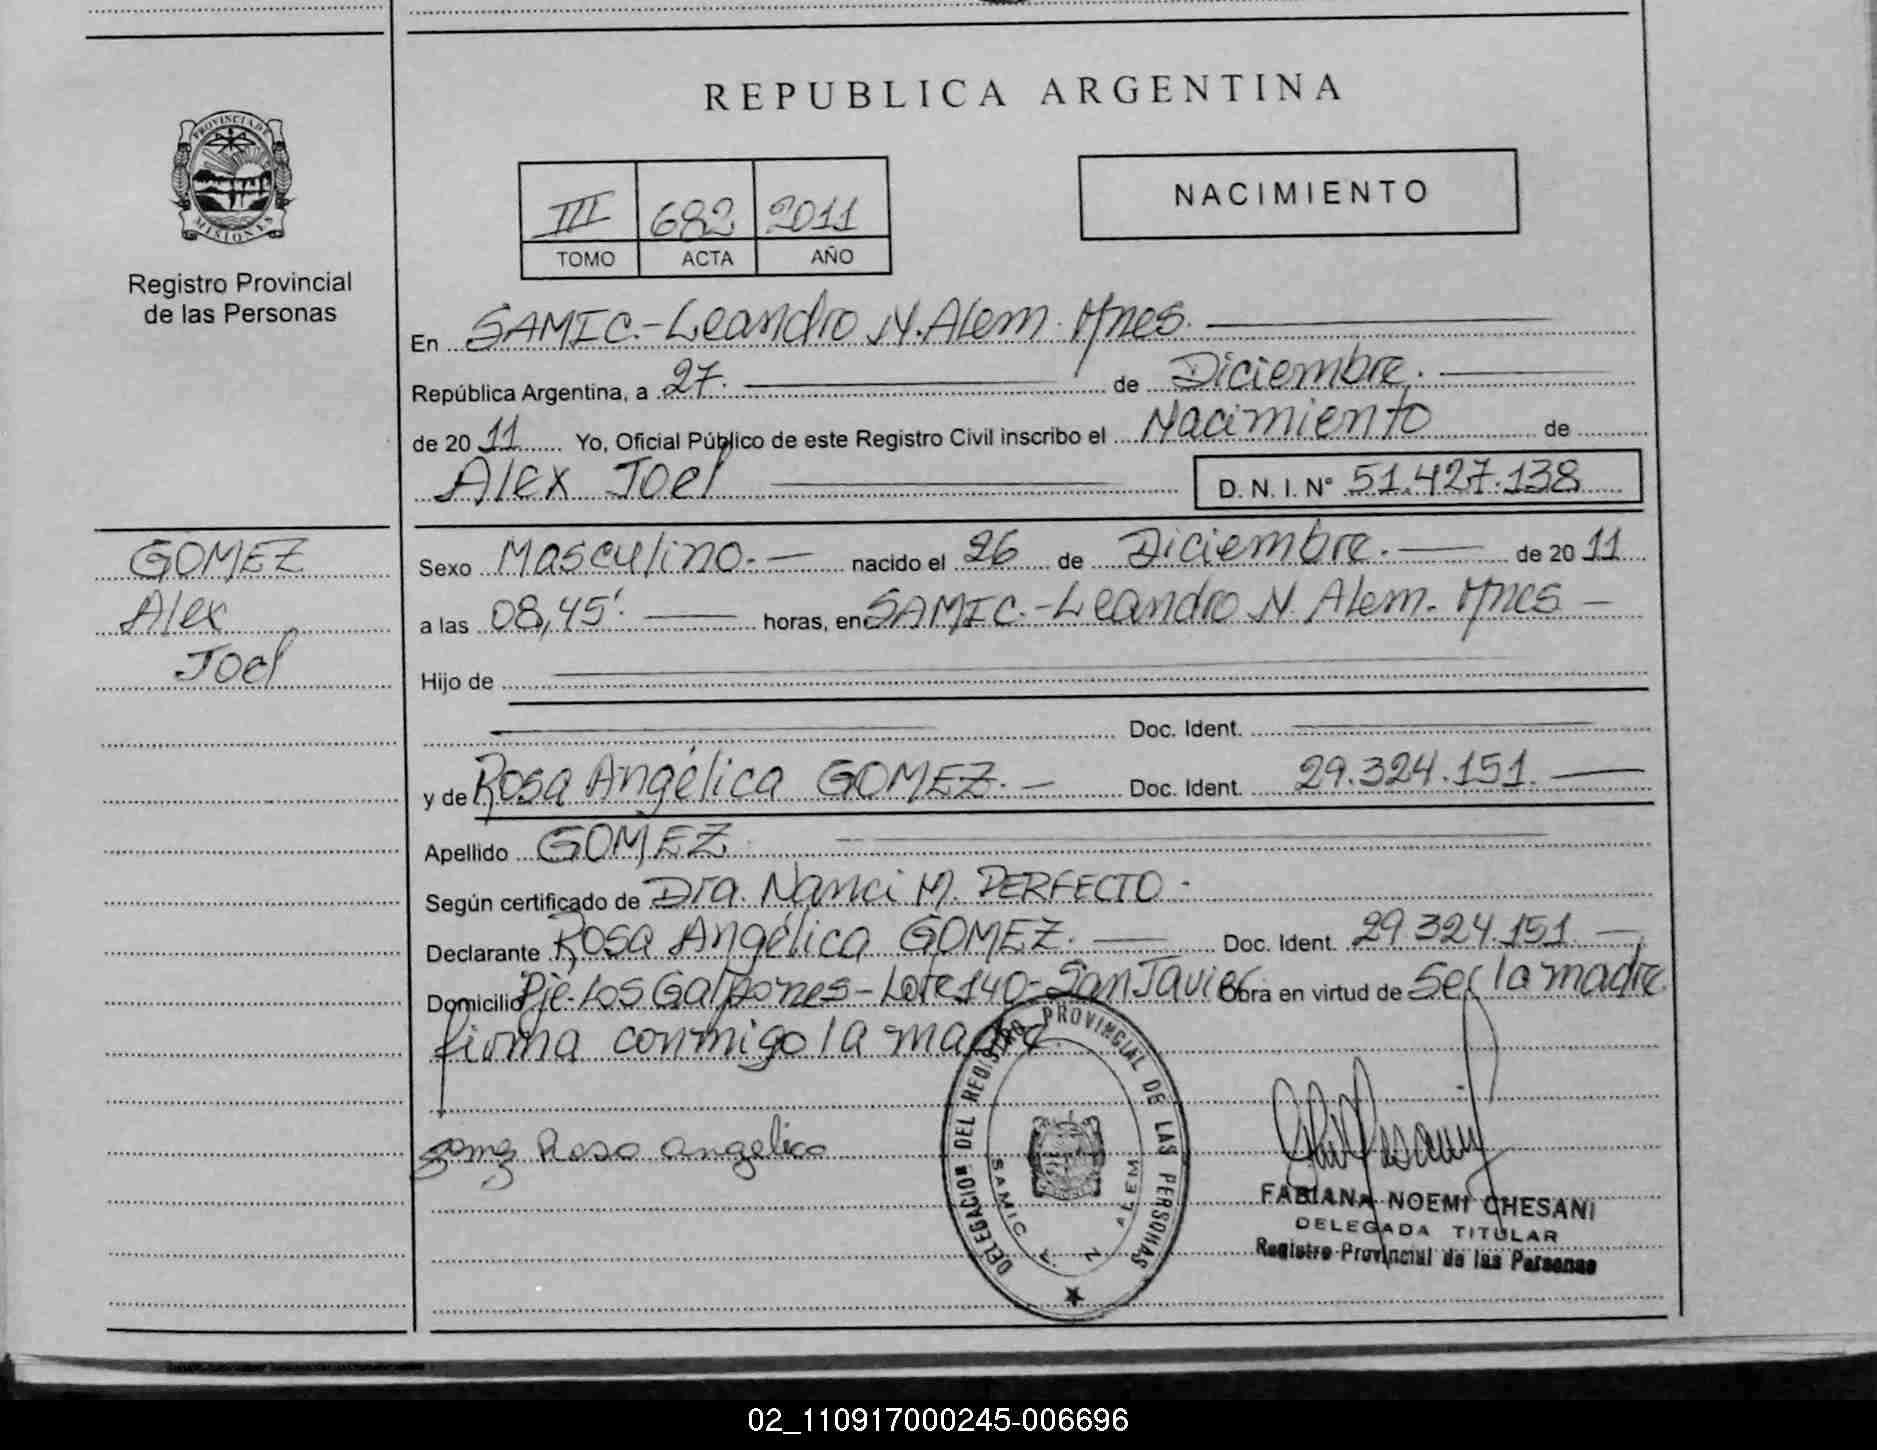 REPUBLICA ARGENTINA
PROVINCIA DE MISIONES
Registro Provincial
de las Personas
III 682 2011
TOMO ACTA AÑO
NACIMIENTO
En SAMIC.-Leandro N. Alem. Mnes.
República Argentina, a 27. de Diciembre.
de 20 11 Yo, Oficial Público de este Registro Civil inscribo el Nacimiento de
Alex Joel D. N. I. Nº 51.427.138
GOMEZ
Alex
Joel
Sexo Masculino.- nacido el 26 de Diciembre. de 20 11
a las 08,45'. horas, en SAMIC.-Leandro N. Alem. Mnes
Hijo de
Doc. Ident.
y de Rosa Angélica GOMEZ.- Doc. Ident. 29.324.151.
Apellido GOMEZ.
Según certificado de Dra. Nanci M. PERFECTO.
Declarante Rosa Angélica GOMEZ. Doc. Ident. 29.324.151.
Domicilio Pje-Los Galpones-Lote 140-San Javier Obra en virtud de Ser la madre
firma conmigo la madre.
gomez Rosa angelica
DELEGACION DEL REGISTRO PROVINCIAL DE LAS PERSONAS
SAMIC A. N. ALEM
FABIANA NOEMI CHESANI
DELEGADA TITULAR
Registro Provincial de las Personas
02_110917000245-006696